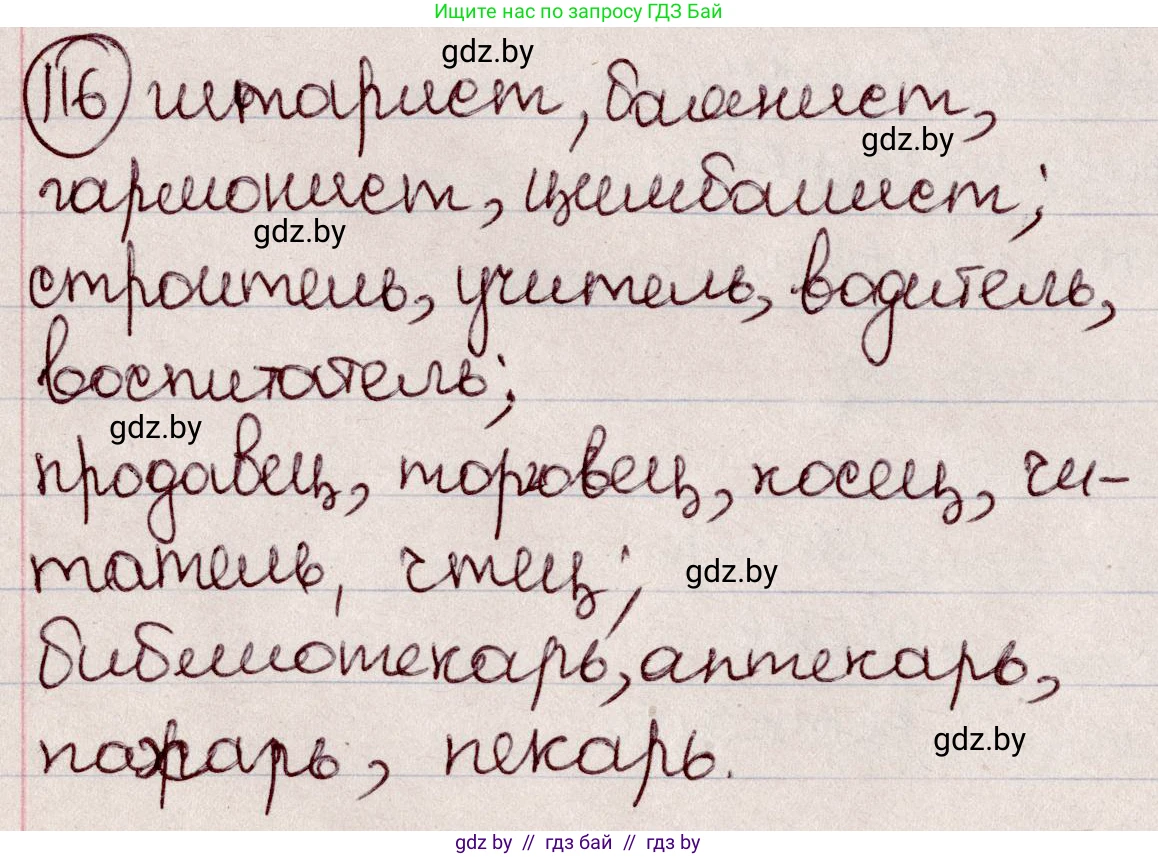 Ищите нас по запросу ГДЗ Бай
gdz.by
116 гитарист, баянист,
gdz.by
гармонист, цимбалист;
gdz.by
строитель, учитель, водитель,
воспитатель;
gdz.by
продавец, торговец, косец, чи-
татель, чтец;
gdz.by
библиотекарь, аптекарь,
gdz.by
пахарь, пекарь.
gdz by // гдз бай // гдз by